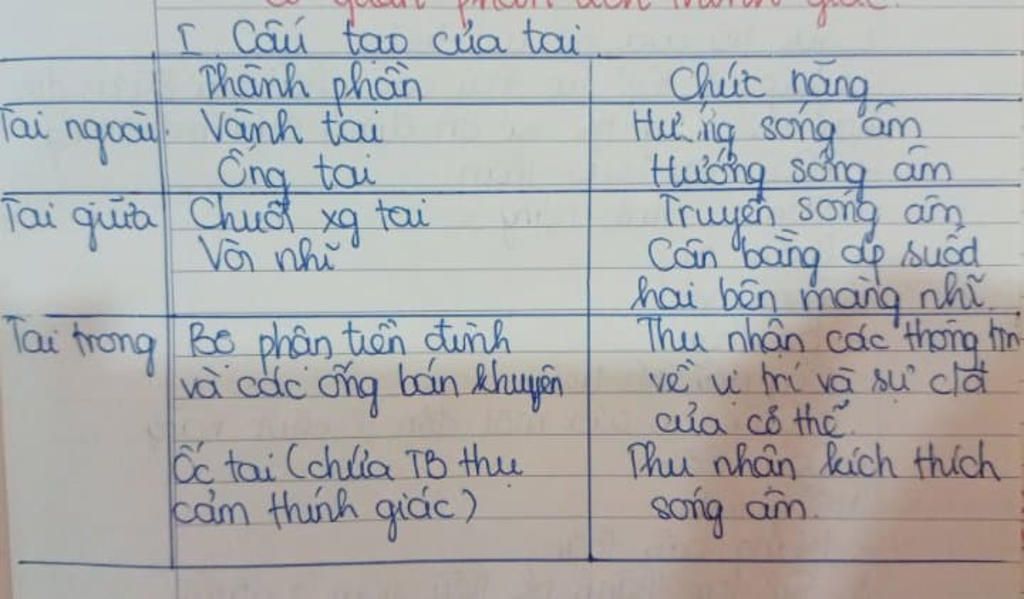 Cơ quan phân tích thính giác.
I. Cấu tạo của tai.
Thành phần Chức năng
Tai ngoài. Vành tai Hứng sóng âm
Ống tai Hướng sóng âm
Tai giữa Chuỗi xg tai Truyền sóng âm
Vòi nhĩ Cân bằng áp suất
hai bên màng nhĩ.
Tai trong Bộ phận tiền đình Thu nhận các thông tin
và các ống bán khuyên về vị trí và sự cđ
của cơ thể.
Ốc tai (chứa TB thụ Thu nhận kích thích
cảm thính giác) sóng âm.